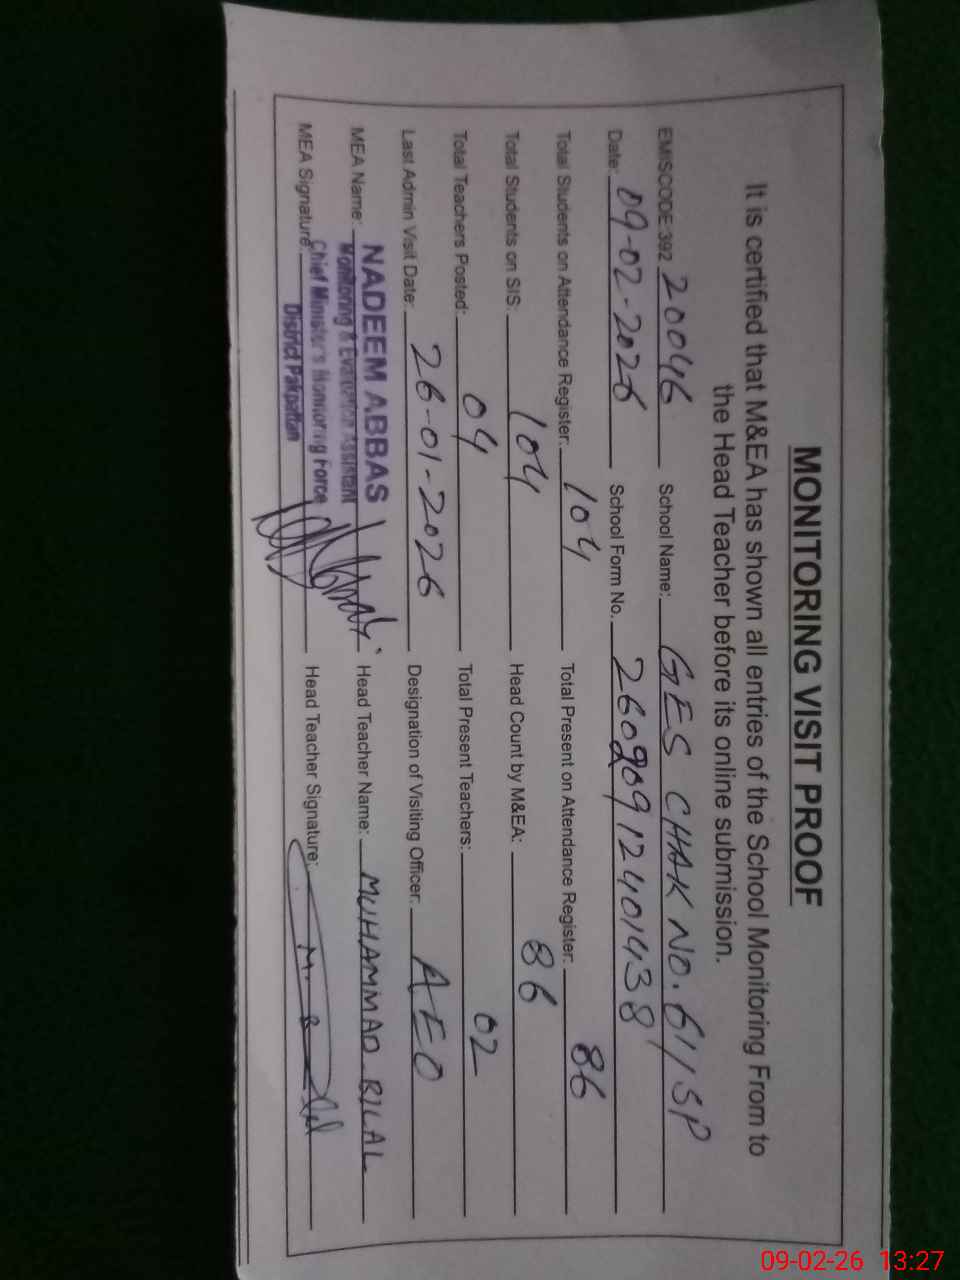 MONITORING VISIT PROOF
It is certified that M&EA has shown all entries of the School Monitoring From to
the Head Teacher before its online submission.
EMISCODE:392 20046 School Name: GES CHAK NO. 61/SP
Date: 09-02-2026 School Form No. 26020912401438
Total Students on Attendance Register: 104 Total Present on Attendance Register: 86
Total Students on SIS: 104 Head Count by M&EA: 86
Total Teachers Posted: 04 Total Present Teachers: 02
Last Admin Visit Date: 26-01-2026 Designation of Visiting Officer: AEO
MEA Name: NADEEM ABBAS Head Teacher Name: MUHAMMAD BILAL
Monitoring & Evaluation Assistant
Chief Minister's Monitoring Force
District Pakpattan
MEA Signature: Head Teacher Signature:
09-02-26 13:27